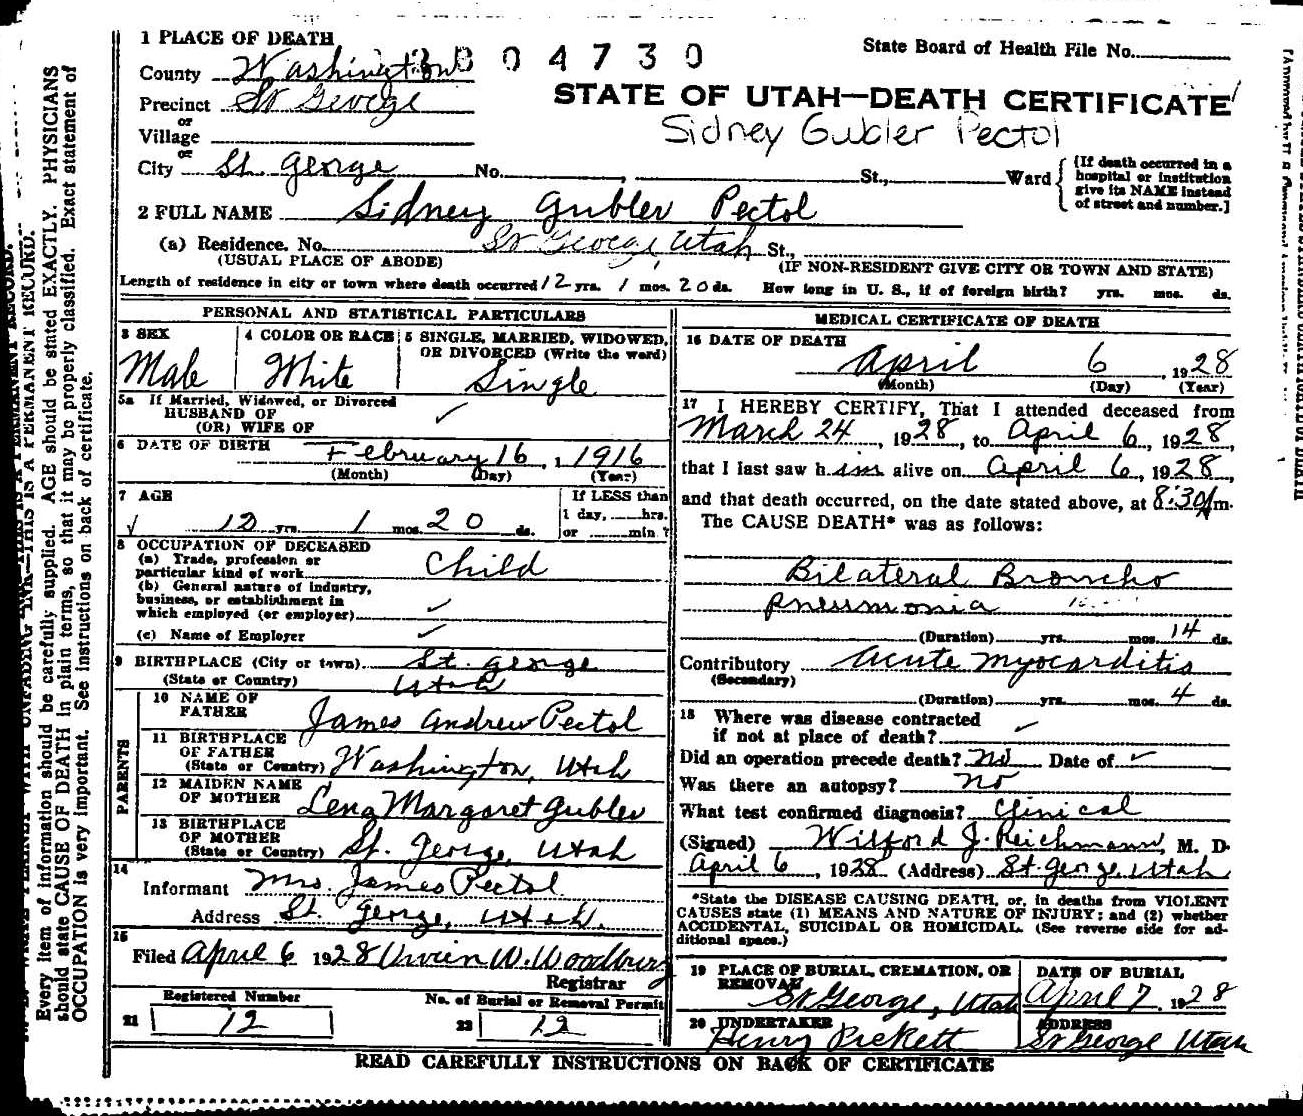 1 PLACE OF DEATH
County Washington
304730
State Board of Health File No.
Precinct St George
or
Village
or
City St. George No. , St., Ward
STATE OF UTAH—DEATH CERTIFICATE
Sidney Gubler Pectol
[If death occurred in a
hospital or institution
give its NAME instead
of street and number.]
2 FULL NAME Sidney Gubler Pectol
(a) Residence. No. St George, Utah St.,
(USUAL PLACE OF ABODE) (IF NON-RESIDENT GIVE CITY OR TOWN AND STATE)
Length of residence in city or town where death occurred 12 yrs. 1 mos. 20 ds. How long in U. S., if of foreign birth? yrs. mos. ds.
PERSONAL AND STATISTICAL PARTICULARS
3 SEX
Male
4 COLOR OR RACE
White
5 SINGLE, MARRIED, WIDOWED,
OR DIVORCED (Write the word)
Single
5a If Married, Widowed, or Divorced
HUSBAND OF
(OR) WIFE OF
6 DATE OF BIRTH February 16, 1916
(Month) (Day) (Year)
7 AGE
12 yrs. 1 mos. 20 ds.
If LESS than
1 day, hrs.
or min.?
8 OCCUPATION OF DECEASED
(a) Trade, profession or
particular kind of work Child
(b) General nature of industry,
business, or establishment in
which employed (or employer)
(c) Name of Employer
9 BIRTHPLACE (City or town) St. George
(State or Country) Utah
PARENTS
10 NAME OF
FATHER James Andrew Pectol
11 BIRTHPLACE
OF FATHER
(State or Country) Washington, Utah
12 MAIDEN NAME
OF MOTHER Lena Margaret Gubler
13 BIRTHPLACE
OF MOTHER
(State or Country) St. George, Utah
14
Informant Mrs. James Pectol
Address St. George, Utah.
15
Filed April 6 1928 Vivien W. Woodbury
Registrar
Registered Number
21 12
No. of Burial or Removal Permit
22 12
MEDICAL CERTIFICATE OF DEATH
16 DATE OF DEATH
April 6, 1928
(Month) (Day) (Year)
17 I HEREBY CERTIFY, That I attended deceased from
March 24, 1928, to April 6, 1928,
that I last saw him alive on April 6, 1928,
and that death occurred, on the date stated above, at 8:30 A m.
The CAUSE DEATH* was as follows:
Bilateral Broncho
pneumonia
(Duration) yrs. mos. 14 ds.
Contributory Acute myocarditis
(Secondary)
(Duration) yrs. mos. 4 ds.
18 Where was disease contracted
if not at place of death?
Did an operation precede death? No Date of
Was there an autopsy? no
What test confirmed diagnosis? Clinical
(Signed) Wilford J. Reichmann, M. D.
April 6, 1928 (Address) St. George, Utah
*State the DISEASE CAUSING DEATH, or, in deaths from VIOLENT
CAUSES state (1) MEANS AND NATURE OF INJURY; and (2) whether
ACCIDENTAL, SUICIDAL OR HOMICIDAL. (See reverse side for ad-
ditional space.)
19 PLACE OF BURIAL, CREMATION, OR
REMOVAL
St George, Utah
DATE OF BURIAL
April 7 1928
20 UNDERTAKER
Henry Pickett
ADDRESS
St George Utah
READ CAREFULLY INSTRUCTIONS ON BACK OF CERTIFICATE
THIS IS A PERMANENT RECORD.
Every item of information should be carefully supplied. AGE should be stated EXACTLY. PHYSICIANS
should state CAUSE OF DEATH in plain terms, so that it may be properly classified. Exact statement of
OCCUPATION is very important. See instructions on back of certificate.